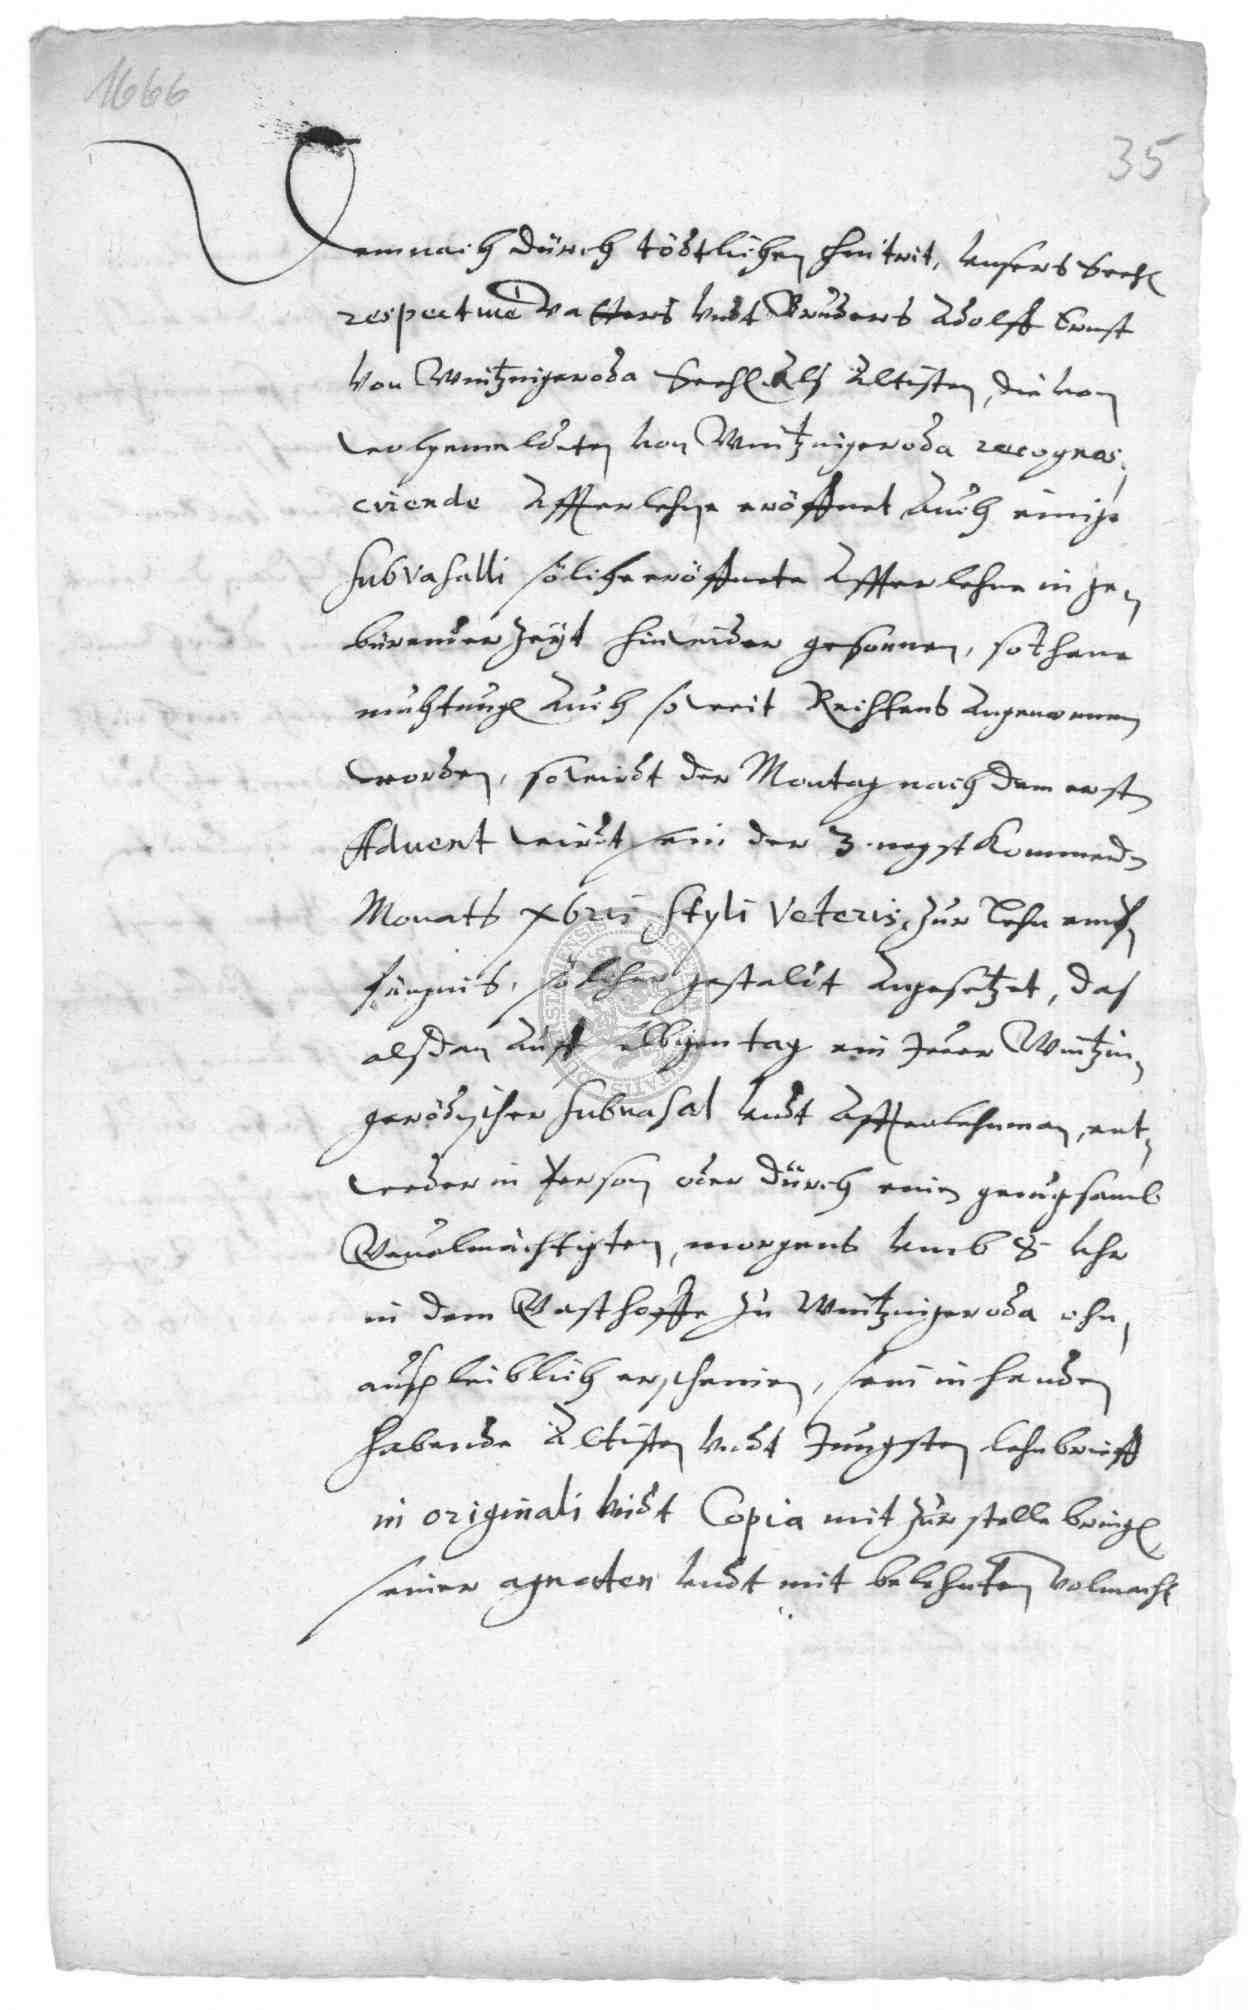 1666
35
Demnach dürch tödtlichen hintrit, unsers Seehl
respective Vatters undt Bruders Adolff Ernst
von Wintzingeroda Seehl. Alß Ältisten, die von
wolgemeldten von Wintzingeroda recognos¬
cirende Affterlehne eröffnet Auch einige
Subvasalli sölche eröffnete Affterlehne in ge¬
bürender Zeyt hinwider gesonnen, sothane
muhtung Auch so weit Rechtens Angenommen
worden, so wirdt der Montag nach dem erst
Advent wirdt sein der 3. negst Kommend
Monats Xbris Styli Veteris, Zur Lehn emp¬
fängnis, sölcher gestaldt Angesetzet, das
alsdan Auff selbigen tag ein Jeder Wintzin¬
gerödischer Subvasal undt Affterlehnman, ent¬
weder in Person oder dürch einen genugsamb
Gevolmächtigten, morgens umb 8 Uhr
in dem Gasthoffe Zu Wintzingeroda ohn¬
ausßleiblich erscheinen, sein in handen
habende Ältisten undt Jüngsten lehnbrieff
in originali undt Copia mit Zur stelle bringen
seiner agnaten undt mit belehnten Volmacht